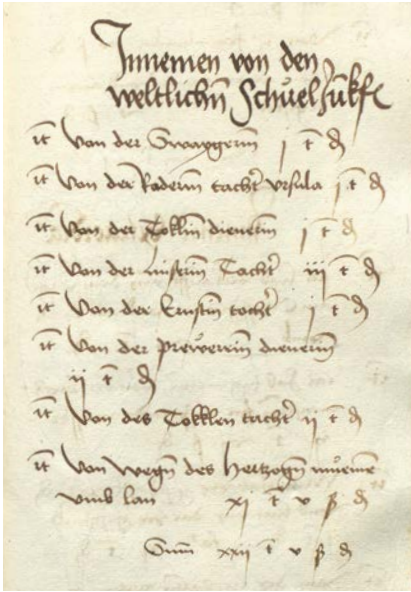 Innemen von den
weltlichn̄ Schuel Junkf
it̄ Von der j t̄ ₰
it̄ Von der Raderin tacht̄ vrsula j t̄ ₰
it̄ Von der Toklin̄ dienerin̄ j t̄ ₰
it̄ Von der Tacht̄ iij t̄ ₰
it̄ Von der Ernstin̄ tocht̄ j t̄ ₰
it̄ Von der Prewerein̄ dienerin̄
ij t̄ ₰
it̄ Von des Tokklen tacht̄ ij t̄ ₰
it̄ Von wegn̄ des Hertzogn̄ můemen
vmb lan xj t̄ v ß ₰
Sum̄ xxij t̄ v ß ₰